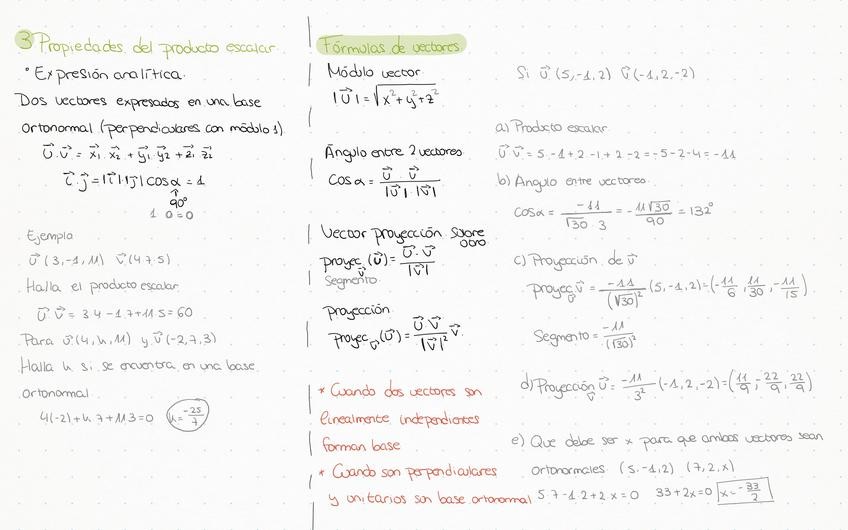 3 Propiedades del producto escalar
° Expresión analítica.
Dos vectores expresados en una base
ortonormal (perpendiculares con módulo 1)
U⃗·V⃗ = x⃗₁·x⃗₂ + y⃗₁·y⃗₂ + z⃗₁·z⃗₂
i⃗·j⃗ = |i⃗|·|j⃗| cos α = 1
90°
1 0=0
Ejemplo
U⃗ (3,-1,11) V⃗ (4,7,5)
Halla el producto escalar
U⃗·V⃗ = 3·4-1·7+11·5=60
Para U⃗(4,k,11) y V⃗(-2,7,3)
Halla k si se encuentra en una base
ortonormal
4(-2)+k·7+11·3=0 k=-25/7
Fórmulas de vectores
Módulo vector
|U⃗| = √x²+y²+z²
Ángulo entre 2 vectores
Cos α = U⃗·V⃗ / |U⃗|·|V⃗|
Vector proyección sobre
otro
proyec V⃗ (U⃗) = U⃗·V⃗ / |V⃗|
Segmento
proyección
proyec V⃗ (U⃗) = U⃗·V⃗ / |V⃗|² V⃗
* Cuando dos vectores son
linealmente independientes
forman base
* Cuando son perpendiculares
y unitarios son base ortonormal
Si U⃗ (5,-1,2) V⃗ (-1,2,-2)
a) Producto escalar
U⃗·V⃗ = 5·-1+2·-1+2·-2=-5-2-4=-11
b) Angulo entre vectores.
cos α = -11 / √30·3 = -11√30 / 90 = 132°
c) Proyección de V⃗
proyec U⃗ V⃗ = -11/(√30)² (5,-1,2)=(-11/6, 11/30, -11/15)
Segmento = -11/(√30)²
d) Proyección V⃗ U⃗ = -11/3² (-1,2,-2)=(11/9, -22/9, 22/9)
e) Que debe ser x para que ambos vectores sean
ortonormales (5,-1,2) (7,2,x)
5·7-1·2+2·x=0 33+2x=0 x=-33/2